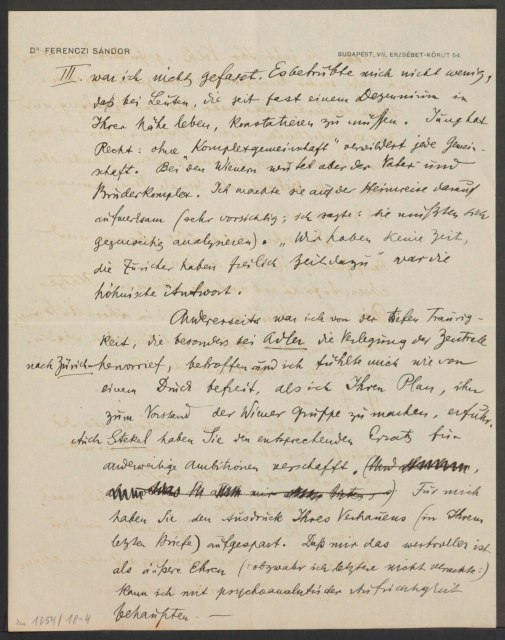 Dr. FERENCZI SÁNDOR
BUDAPEST, VII, ERZSÉBET-KÖRUT 54.
III. war ich nicht gefasst. Es betrübte mich nicht wenig,
daß bei Leuten, die seit fast einem Dezennium in
Ihrer Nähe leben, konstatieren zu müssen. Jung hat
Recht: ohne „Komplexgemeinschaft" verwildert jede Gemein-
schaft. Bei den Wienern wütet aber der Vater- und
Bruderkomplex. Ich machte sie auf der Heimreise darauf
aufmerksam (sehr vorsichtig; ich sagte: sie müßten sich
gegenseitig analysieren). „Wir haben keine Zeit,
die Züricher haben freilich Zeit dazu" war die
höhnische Antwort.
Andererseits war ich von der tiefen Traurig-
keit, die besonders bei Adler die Verlegung der Zentrale
nach Zürich hervorrief, betroffen und ich fühlte mich wie von
einem Druck befreit, als ich Ihren Plan, ihn
zum Vorstand der Wiener Gruppe zu machen, erfuhr.
Auch Stekel haben Sie den entsprechenden Ersatz für
anderweitige Ambitionen verschafft. (Und
Für mich
haben Sie den Ausdruck Ihres Vertrauens (in Ihrem
letzten Briefe) aufgespart. Daß mir das wertvoller ist
als äußere Ehren (: obzwar ich letztere nicht verachte :)
kann ich mit psychoanalytischer Aufrichtigkeit
behaupten. —
1054/18-4